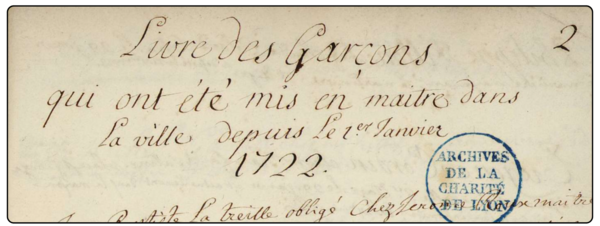 2
Livre des Garçons
qui ont été mis en maitre dans
La ville depuis Le 1er Janvier
1722.
ARCHIVES
DE LA
CHARITÉ
DE LYON
Baptiste La treille obligé Chez Jerome maitre